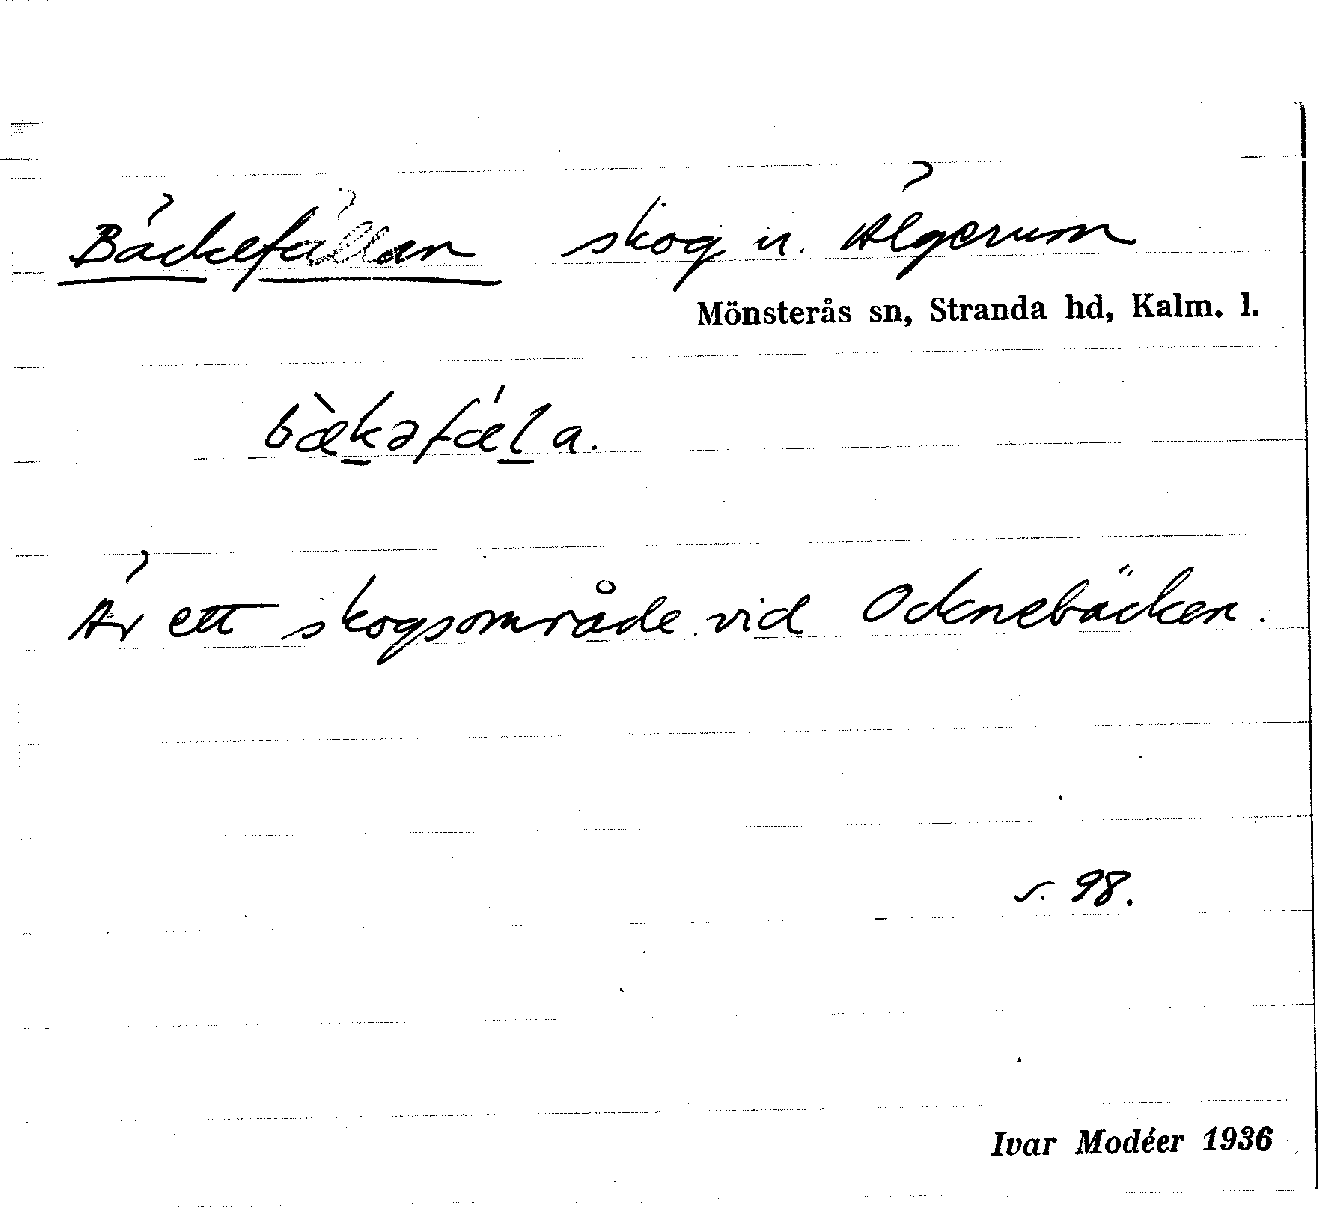 Bäckefällan skog u. Älgerum
Mönsterås sn, Stranda hd, Kalm. l.
bæ̀kəfǽl̠a.
Är ett skogsområde vid Ocknebäcken.
s. 98.
Ivar Modéer 1936